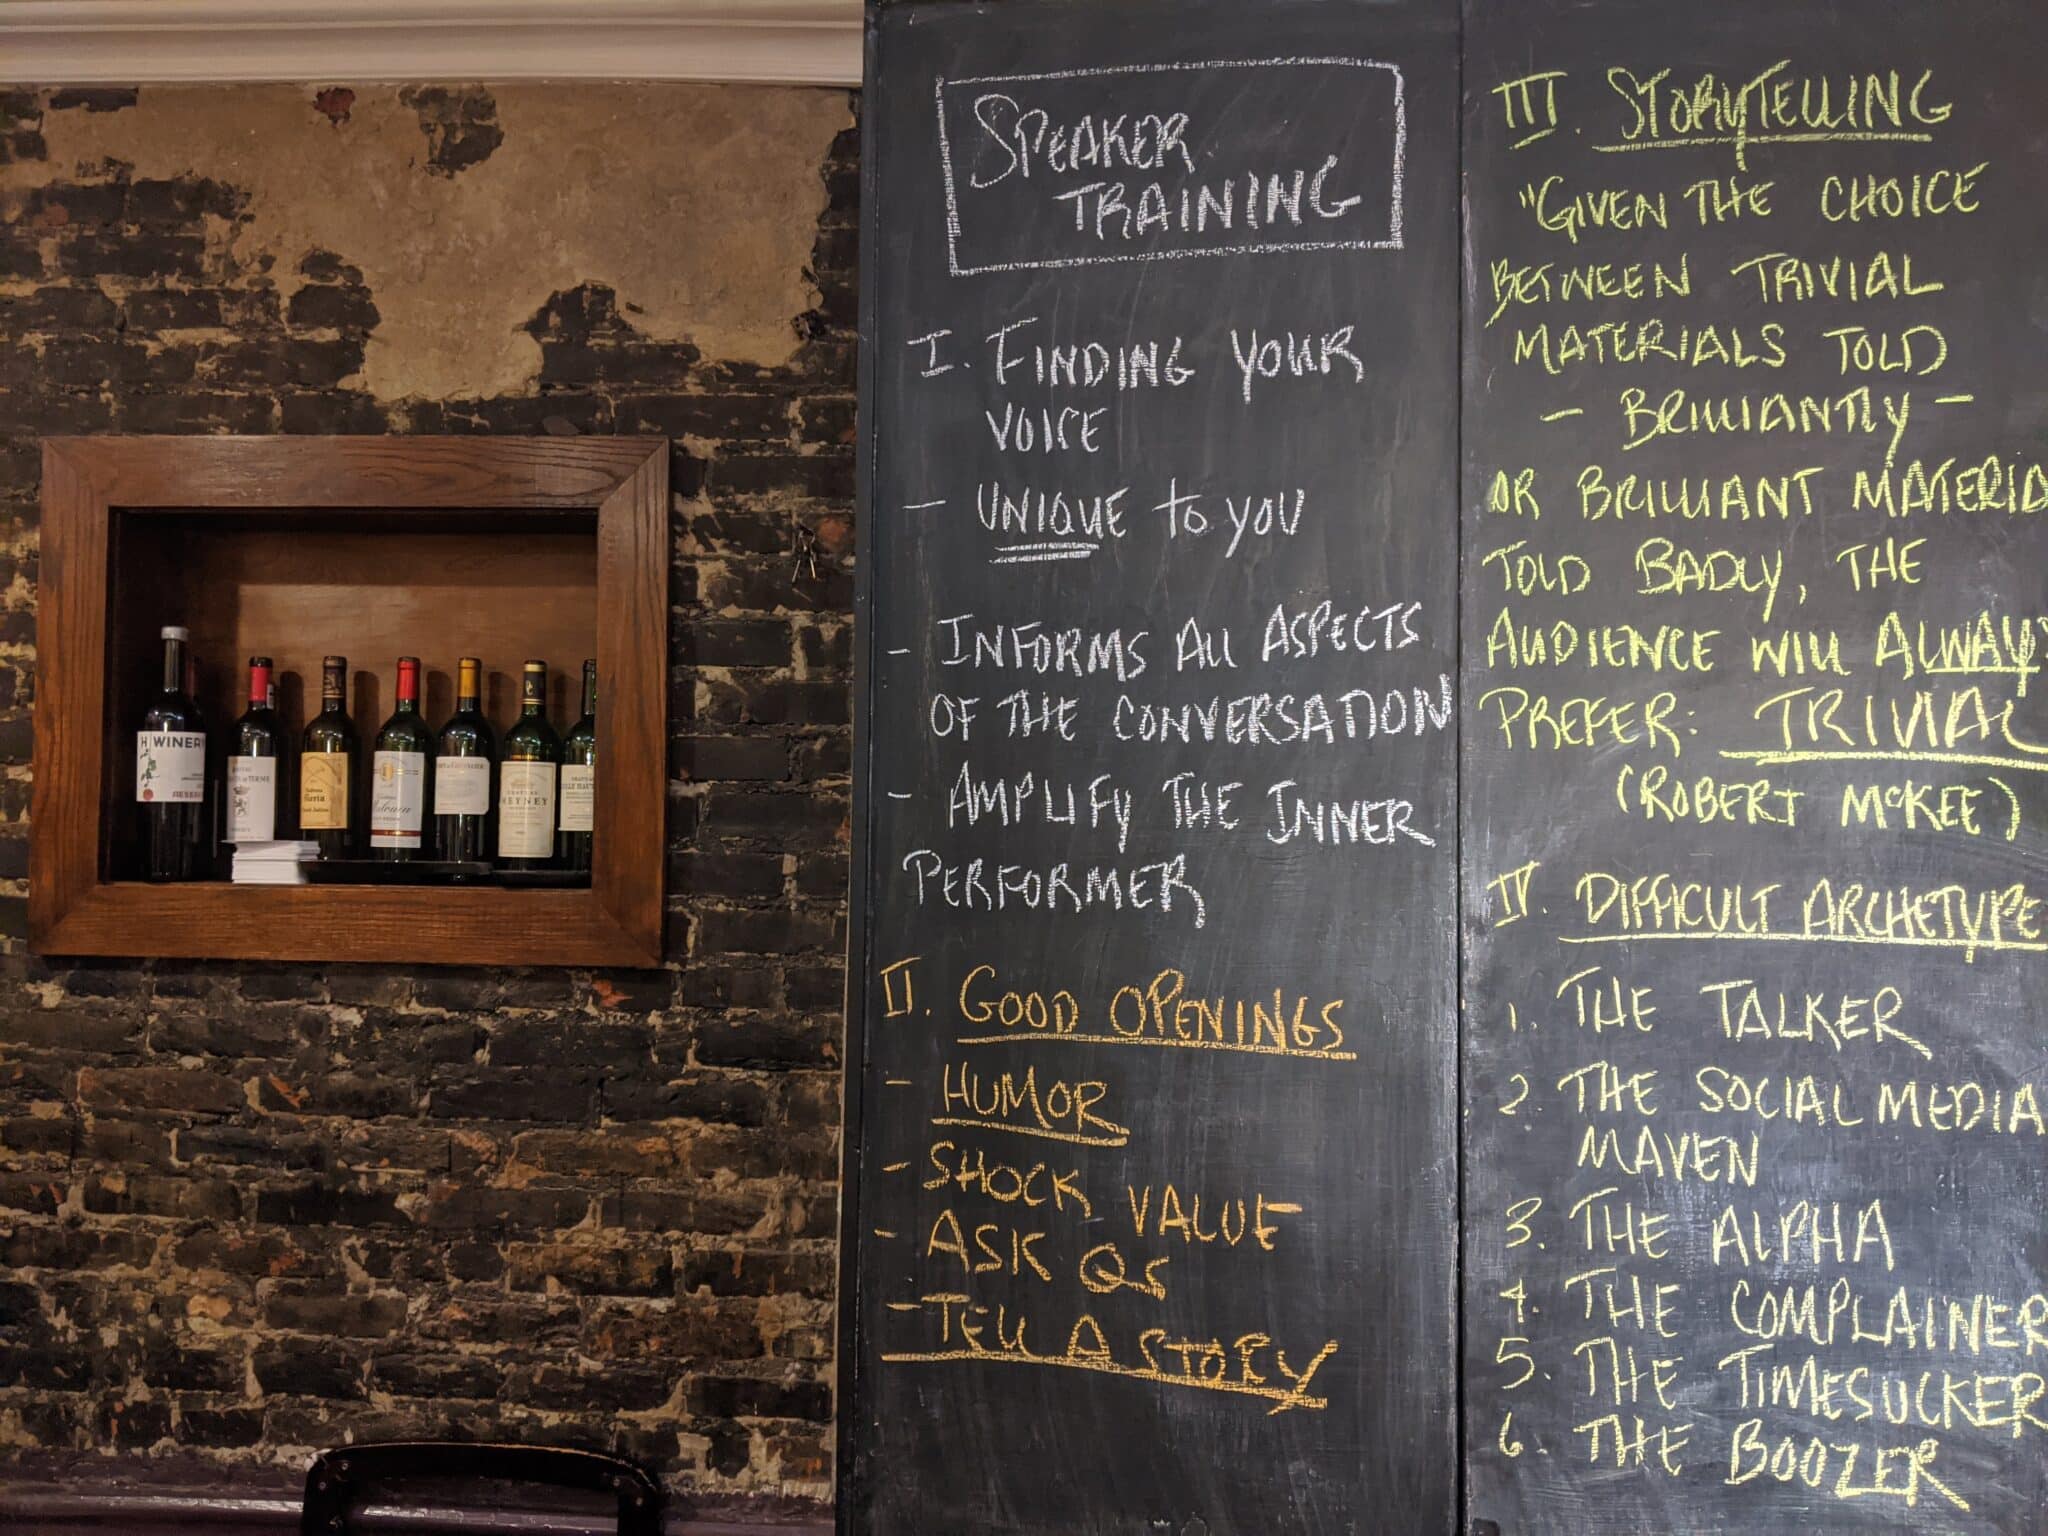 SPEAKER
TRAINING
I. FINDING YOUR
VOICE
- UNIQUE to you
- INFORMS ALL ASPECTS
OF THE CONVERSATION
- AMPLIFY THE INNER
PERFORMER
II. GOOD OPENINGS
- HUMOR
- SHOCK VALUE
- ASK Qs
- TELL A STORY
III. STORYTELLING
"GIVEN THE CHOICE
BETWEEN TRIVIAL
MATERIALS TOLD
- BRILLIANTLY -
OR BRILLIANT MATERIA
TOLD BADLY, THE
AUDIENCE WILL ALWAYS
PREFER: TRIVIAL
(ROBERT MCKEE)
IV. DIFFICULT ARCHETYPE
1. THE TALKER
2. THE SOCIAL MEDIA
MAVEN
3. THE ALPHA
4. THE COMPLAINER
5. THE TIMESUCKER
6. THE BOOZER
WINER
MEYNEY